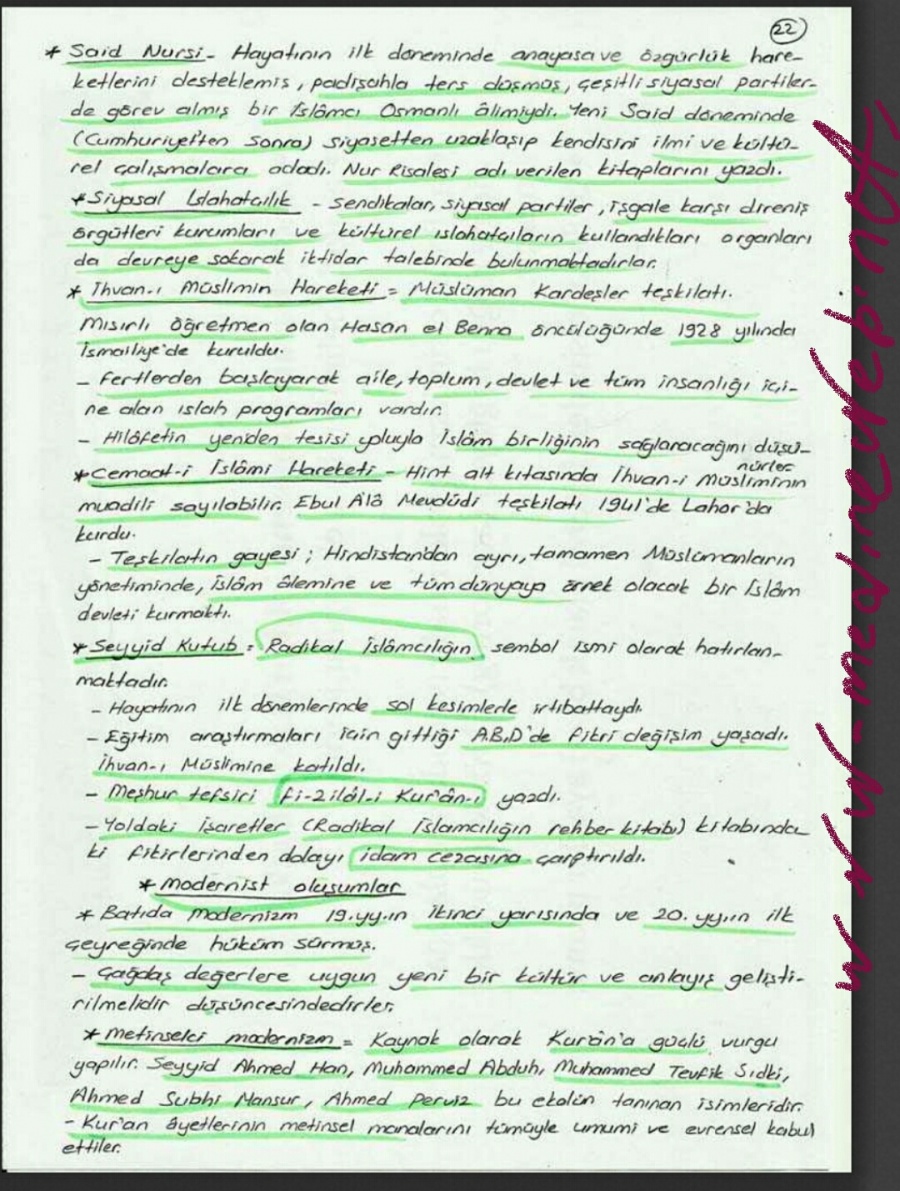 22
* Said Nursi - Hayatının ilk döneminde anayasa ve özgürlük hare-
ketlerini desteklemiş, padişahla ters düşmüş, çeşitli siyasal partiler-
de görev almış bir İslâmcı Osmanlı âlimiydi. Yeni Said döneminde
(Cumhuriyetten Sonra) siyasetten uzaklaşıp kendisini ilmi ve kültü-
rel çalışmalara adadı. Nur Risalesi adı verilen kitaplarını yazdı.
* Siyasal Islahatçılık - Sendikalar, siyasal partiler, işgale karşı direniş
örgütleri kurumları ve kültürel ıslahatçıların kullandıkları organları
da devreye sokarak iktidar talebinde bulunmaktadırlar.
* İhvan-ı Müslimin Hareketi = Müslüman Kardeşler teşkilatı.
Mısırlı öğretmen olan Hasan el Benna öncülüğünde 1928 yılında
İsmailiye'de kuruldu.
- Fertlerden başlayarak aile, toplum, devlet ve tüm insanlığı içi-
ne alan ıslah programları vardır.
- Hilâfetin yeniden tesisi yoluyla İslâm birliğinin sağlanacağını düşü-
nürler
* Cemaat-i İslâmi Hareketi - Hint alt kıtasında İhvan-i Müsliminin
muadili sayılabilir. Ebul Âlâ Mevdûdi teşkilatı 1941'de Lahor'da
kurdu.
- Teşkilatın gayesi; Hindistandan ayrı, tamamen Müslümanların
yönetiminde, İslâm âlemine ve tüm dünyaya örnek olacak bir İslâm
devleti kurmaktı.
* Seyyid Kutub = Radikal İslâmcılığın sembol ismi olarak hatırlan-
maktadır.
- Hayatının ilk dönemlerinde sol kesimlerle irtibattaydı.
- Eğitim araştırmaları için gittiği A.B.D'de fikri değişim yaşadı.
İhvan-ı Müslimine katıldı.
- Meşhur tefsiri fi-Zilâl-i Kur'ân-ı yazdı.
- Yoldaki İşaretler (Radikal İslamcılığın rehber kitabı) kitabında
ki fikirlerinden dolayı idam cezasına çarptırıldı.
* Modernist oluşumlar
* Batıda Modernizm 19.yy.ın ikinci yarısında ve 20.yy.ın ilk
çeyreğinde hüküm sürmüş.
- Çağdaş değerlere uygun yeni bir kültür ve anlayış gelişti-
rilmelidir düşüncesindedirler.
* Metinselci modernizm = Kaynak olarak Kurân'a güçlü vurgu
yapılır. Seyyid Ahmed Han, Muhammed Abduh, Muhammed Tevfik Sıdki,
Ahmed Subhi Mansur, Ahmed Perviz bu ekolün tanınan isimleridir.
- Kur'an âyetlerinin metinsel manalarını tümüyle umumi ve evrensel kabul
ettiler.